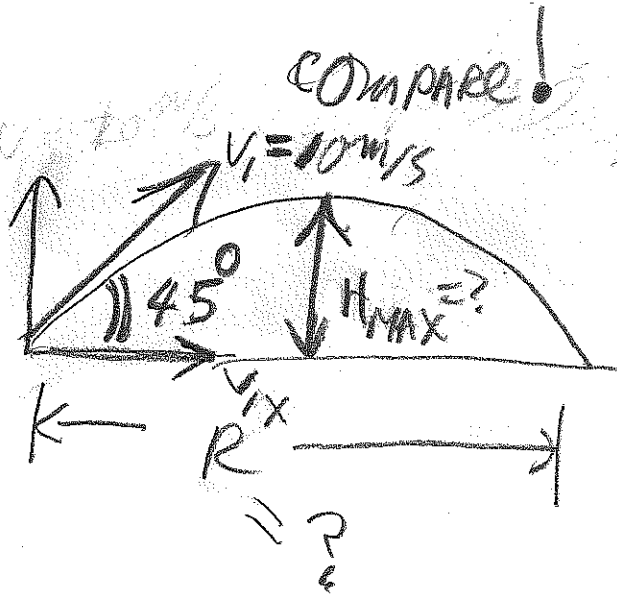 COMPARE!
V₁ = 10 m/s
45°
H_MAX = ?
V₁ₓ
R
= ?